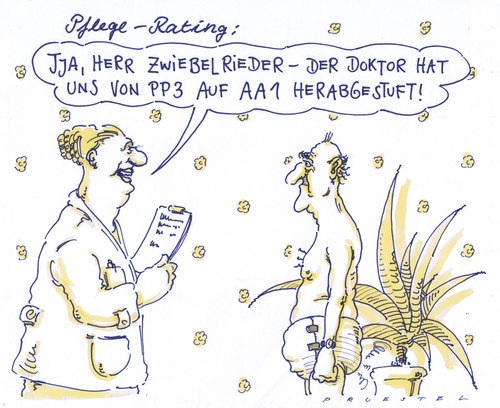 Pflege-Rating:
TJA, HERR ZWIEBELRIEDER – DER DOKTOR HAT
UNS VON PP3 AUF AA1 HERABGESTUFT!
PRUESTEL